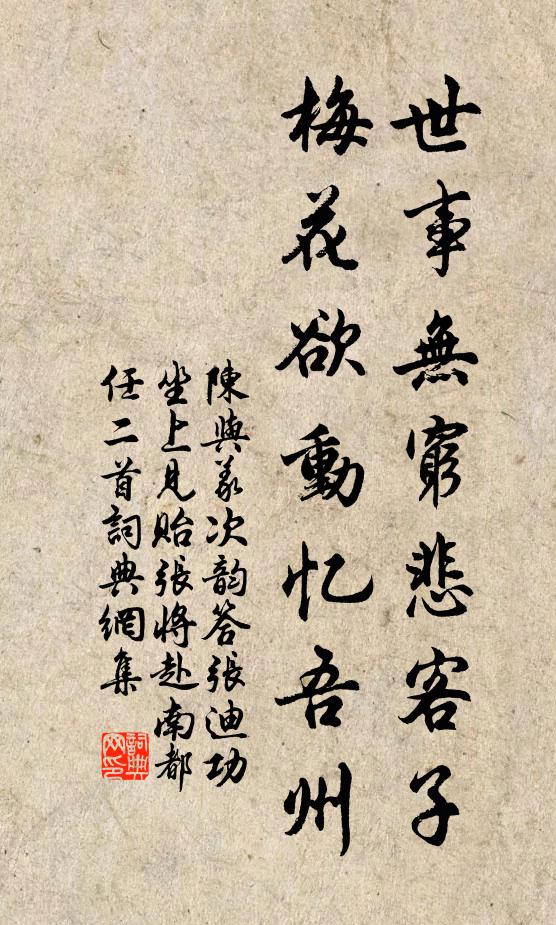 世事無窮悲客子
梅花欲動忆吾州
陳與義次韵答張迪功
坐上見貽張将赴南都
任二首詞典網集
詞典
网印